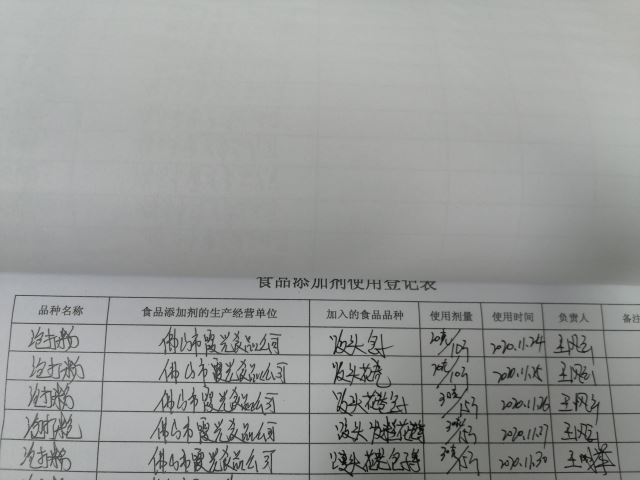 食品添加剂使用登记表
品种名称 食品添加剂的生产经营单位 加入的食品品种 使用剂量 使用时间 负责人 备注
泡打粉 佛山市霞光食品公司 馒头包子 20克/10斤 2020.11.24
泡打粉 佛山市霞光食品公司 馒头花卷 20克/10斤 2020.11.25
泡打粉 佛山市霞光食品公司 馒头花卷包子 30克/15斤 2020.11.26
泡打粉 佛山市霞光食品公司 馒头 花卷 30克/15斤 2020.11.27
泡打粉 佛山市霞光食品公司 馒头花卷包子 30克/15斤 2020.11.30